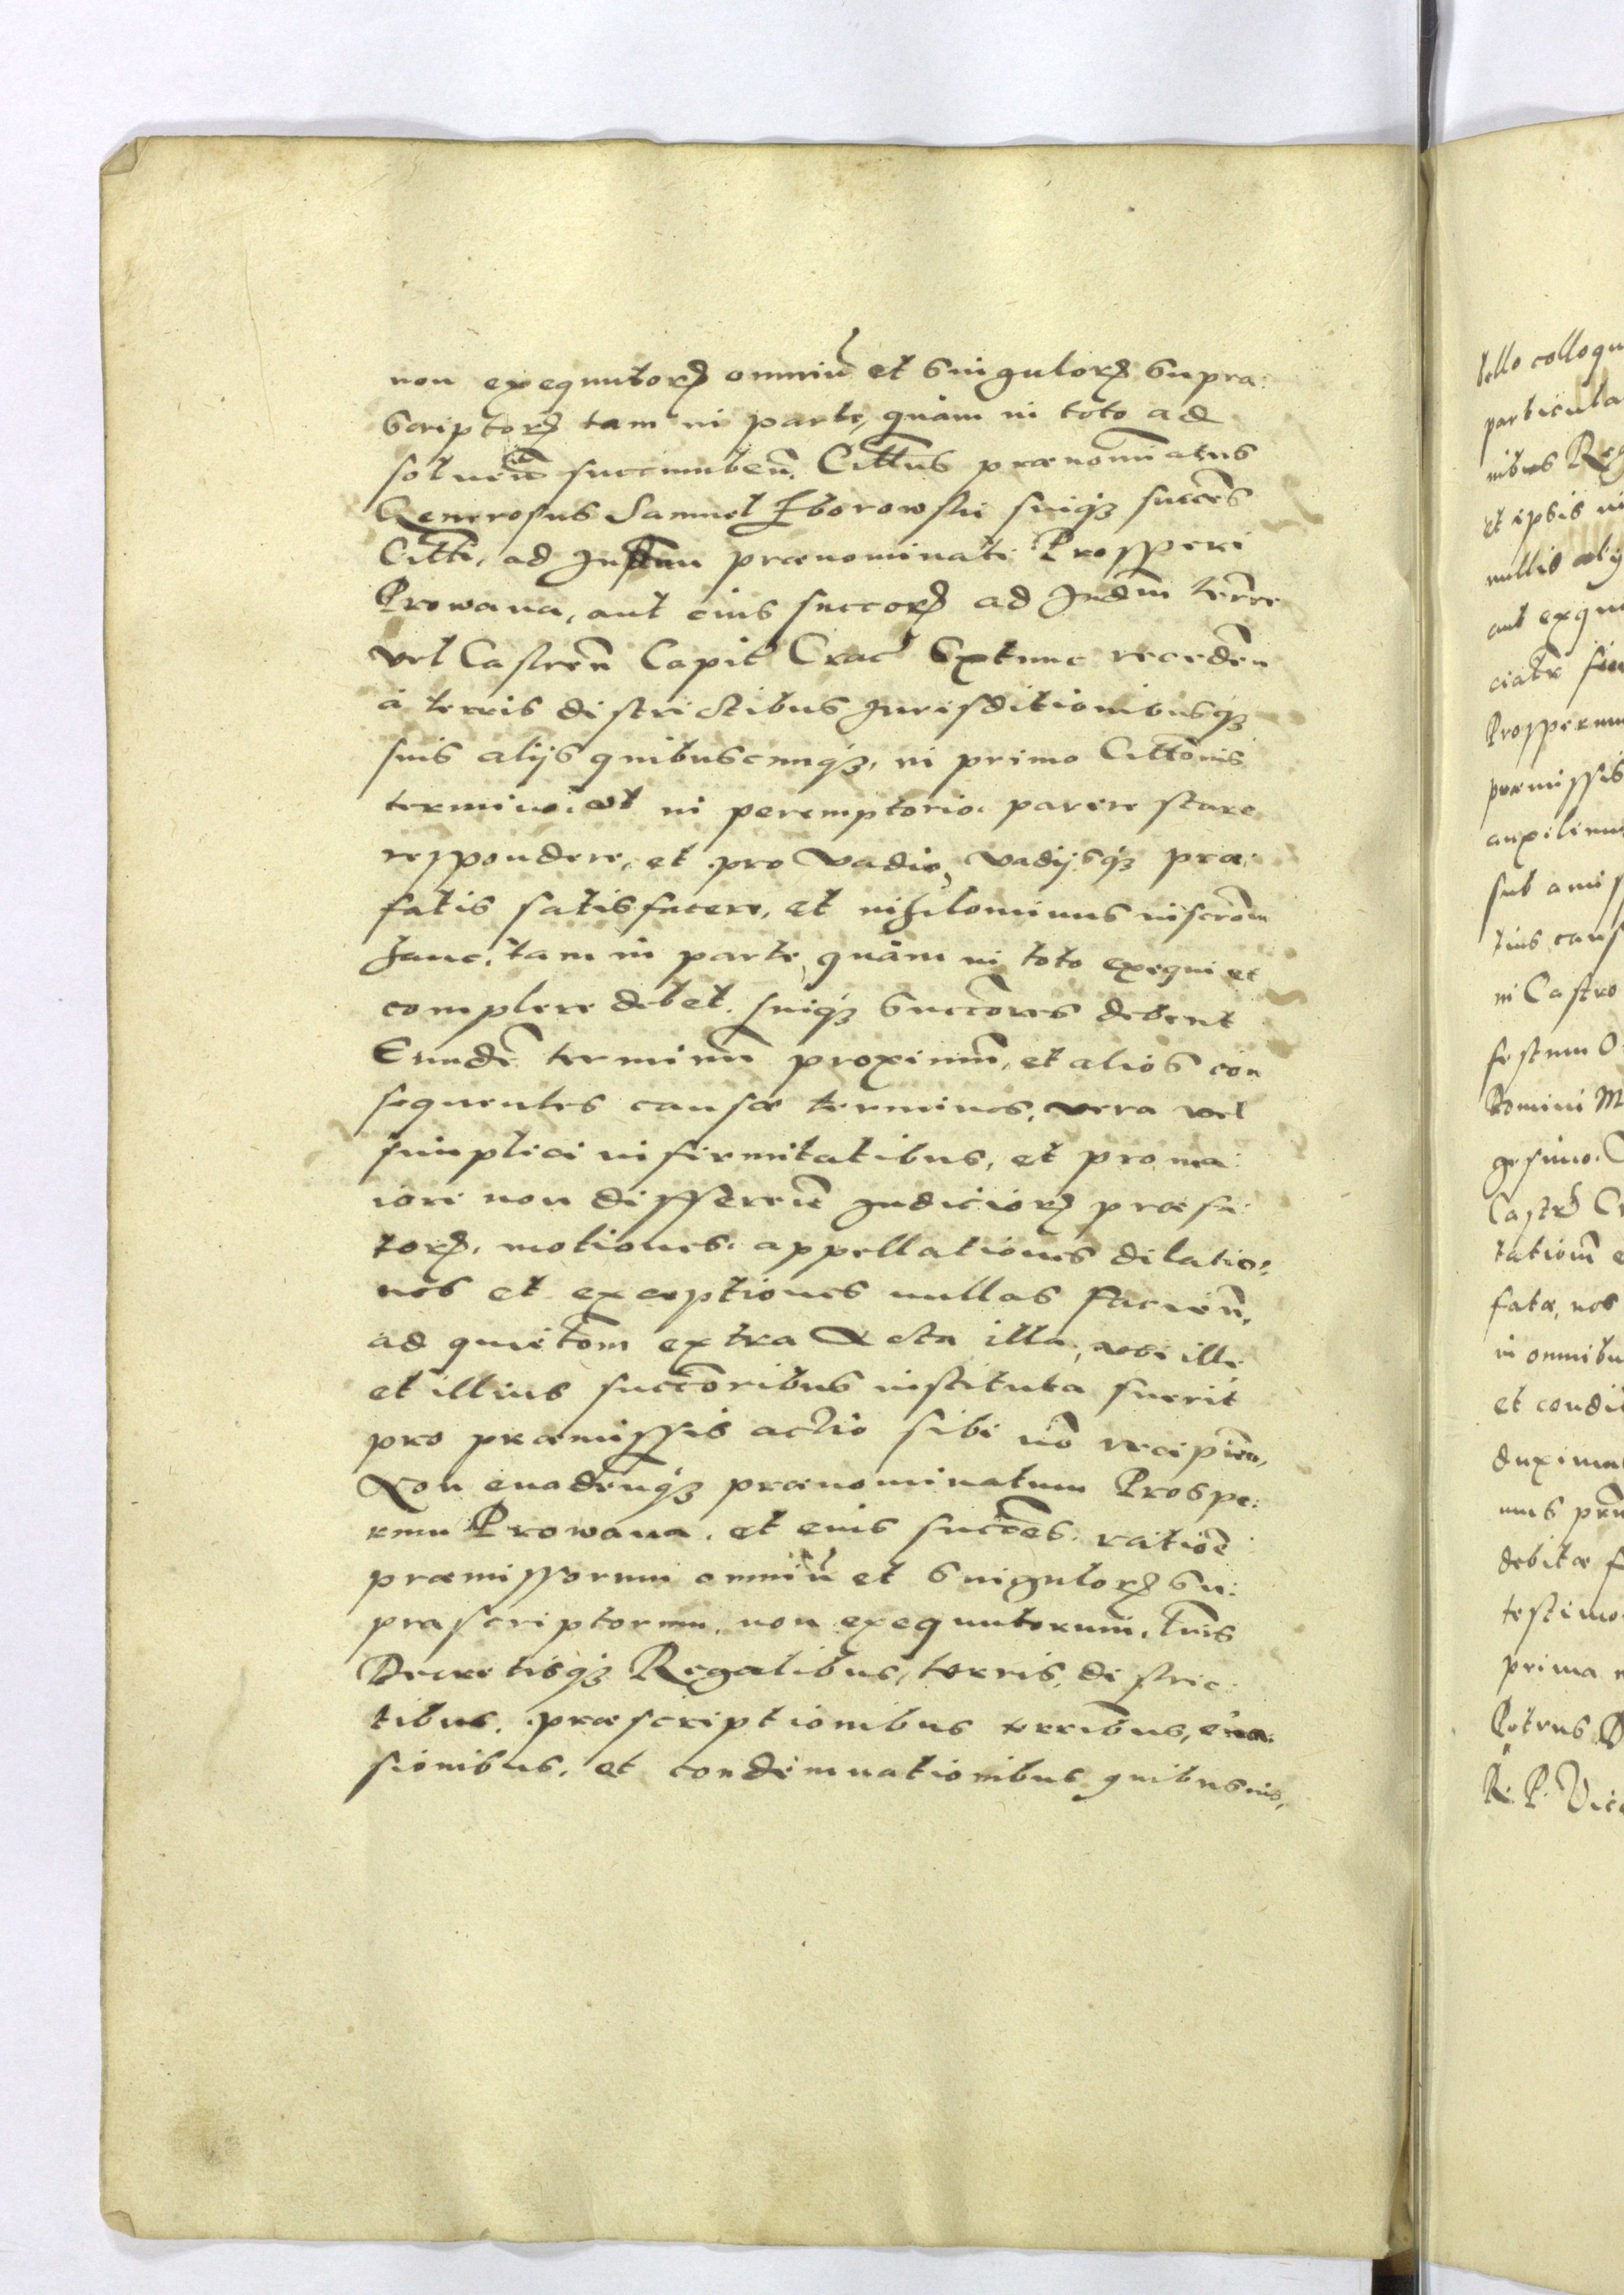 non exequutorꝝ omniū et singulorꝝ supra:
scriptorꝝ tam in parte, quàm in toto ad
soluen̄ succumben̄. Citt̄us prænom̄iatus
Generosus Samuel Zborowski suiqꝫ succēs
Citt̄i, ad Inst̄am prænominati Prosperi
Prowana, aut eius succorꝝ ad Iud̄m terr̄re
vel Castren̄ Capit̄ Crac̄ Extunc receden̄
à terris districtibus Iurisditionibusqꝫ
suis alijs quibuscunqꝫ, in primo Citt̄onis
termino. et in peremptorio. parere stare
respondere, et pro Vadio, vadijsqꝫ præ:
fatis satisfacere, et nihilominus inscrōem
hanc, tam in parte quàm in toto exequi et
complere debet. suiqꝫ succōres debent
Eundē terminū proximū, et alios con
sequentes causæ terminos, vera vel
simplici infirmitatibus, et pro ma:
iori non differen̄ Iudiciorꝝ præfa:
torꝝ, motiones, appellationes dilatio:
nes et exceptiones nullas facien̄,
ad quiet̄om extra Acta illa, ubi illi
et illius succōribus instituta fuerit
pro præmissis actio sibi nō recipien̄,
Non evaden̄qꝫ prænominatum Prospe:
rum Prowana, et eius succēs. ratiōe
præmissorum omniū et singulorꝝ su:
prascriptorum, non exequutorum, l̄ris
Decretisqꝫ Regalibus, terris, distric:
tibus, præscriptionibus terrībus, eua:
sionibus, et condemnationibus quibusuis,
bello colloqu
particula
nibus Reg
et ipsis in
nullis alij
aut exequ
Prosperum
præmissis
auxilium
sub amiss
tius caus
in Castro
festum O
Domini M
gesimo.
Castrꝝ Cr
tation̄ e
fata, nos
in omnibu
et condit
duximu
mus præ
debitæ f
testimo
prima
Petrus D
R. P. Vice